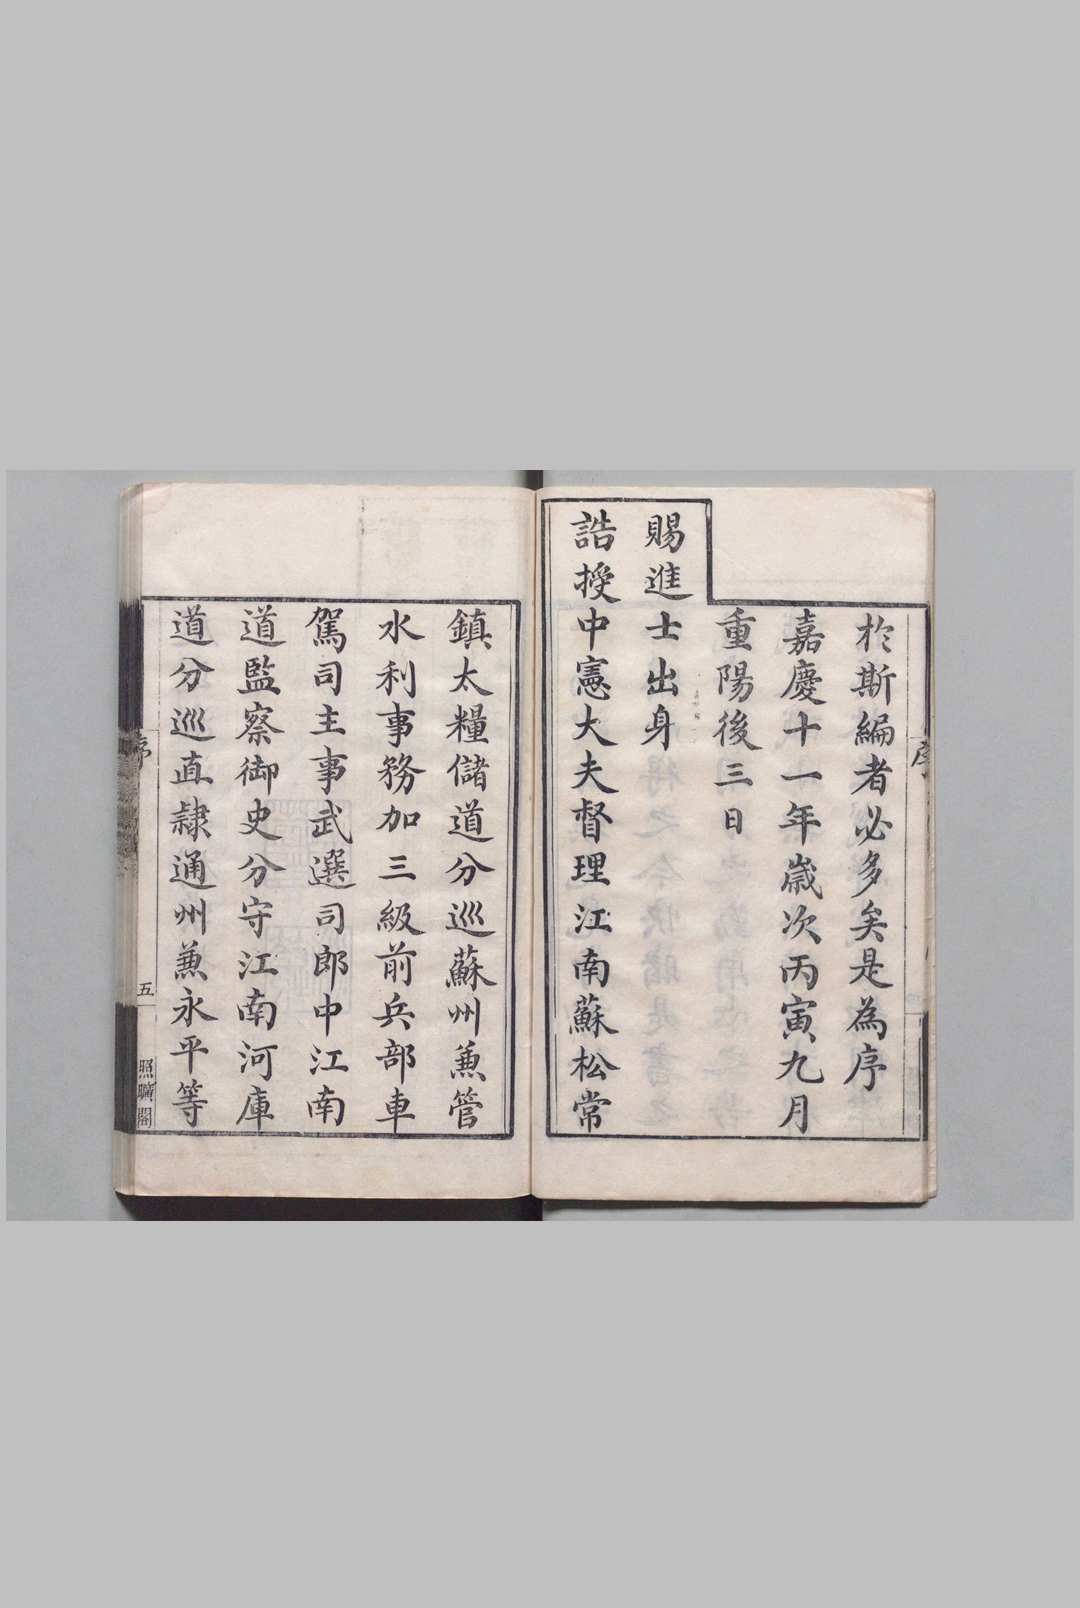 於斯編者必多矣是為序
嘉慶十一年歲次丙寅九月
重陽後三日
賜進士出身
誥授中憲大夫督理江南蘇松常
鎮太糧儲道分巡蘇州兼管
水利事務加三級前兵部車
駕司主事武選司郎中江南
道監察御史分守江南河庫
道分巡直隸通州兼永平等
序
五
照曠閣